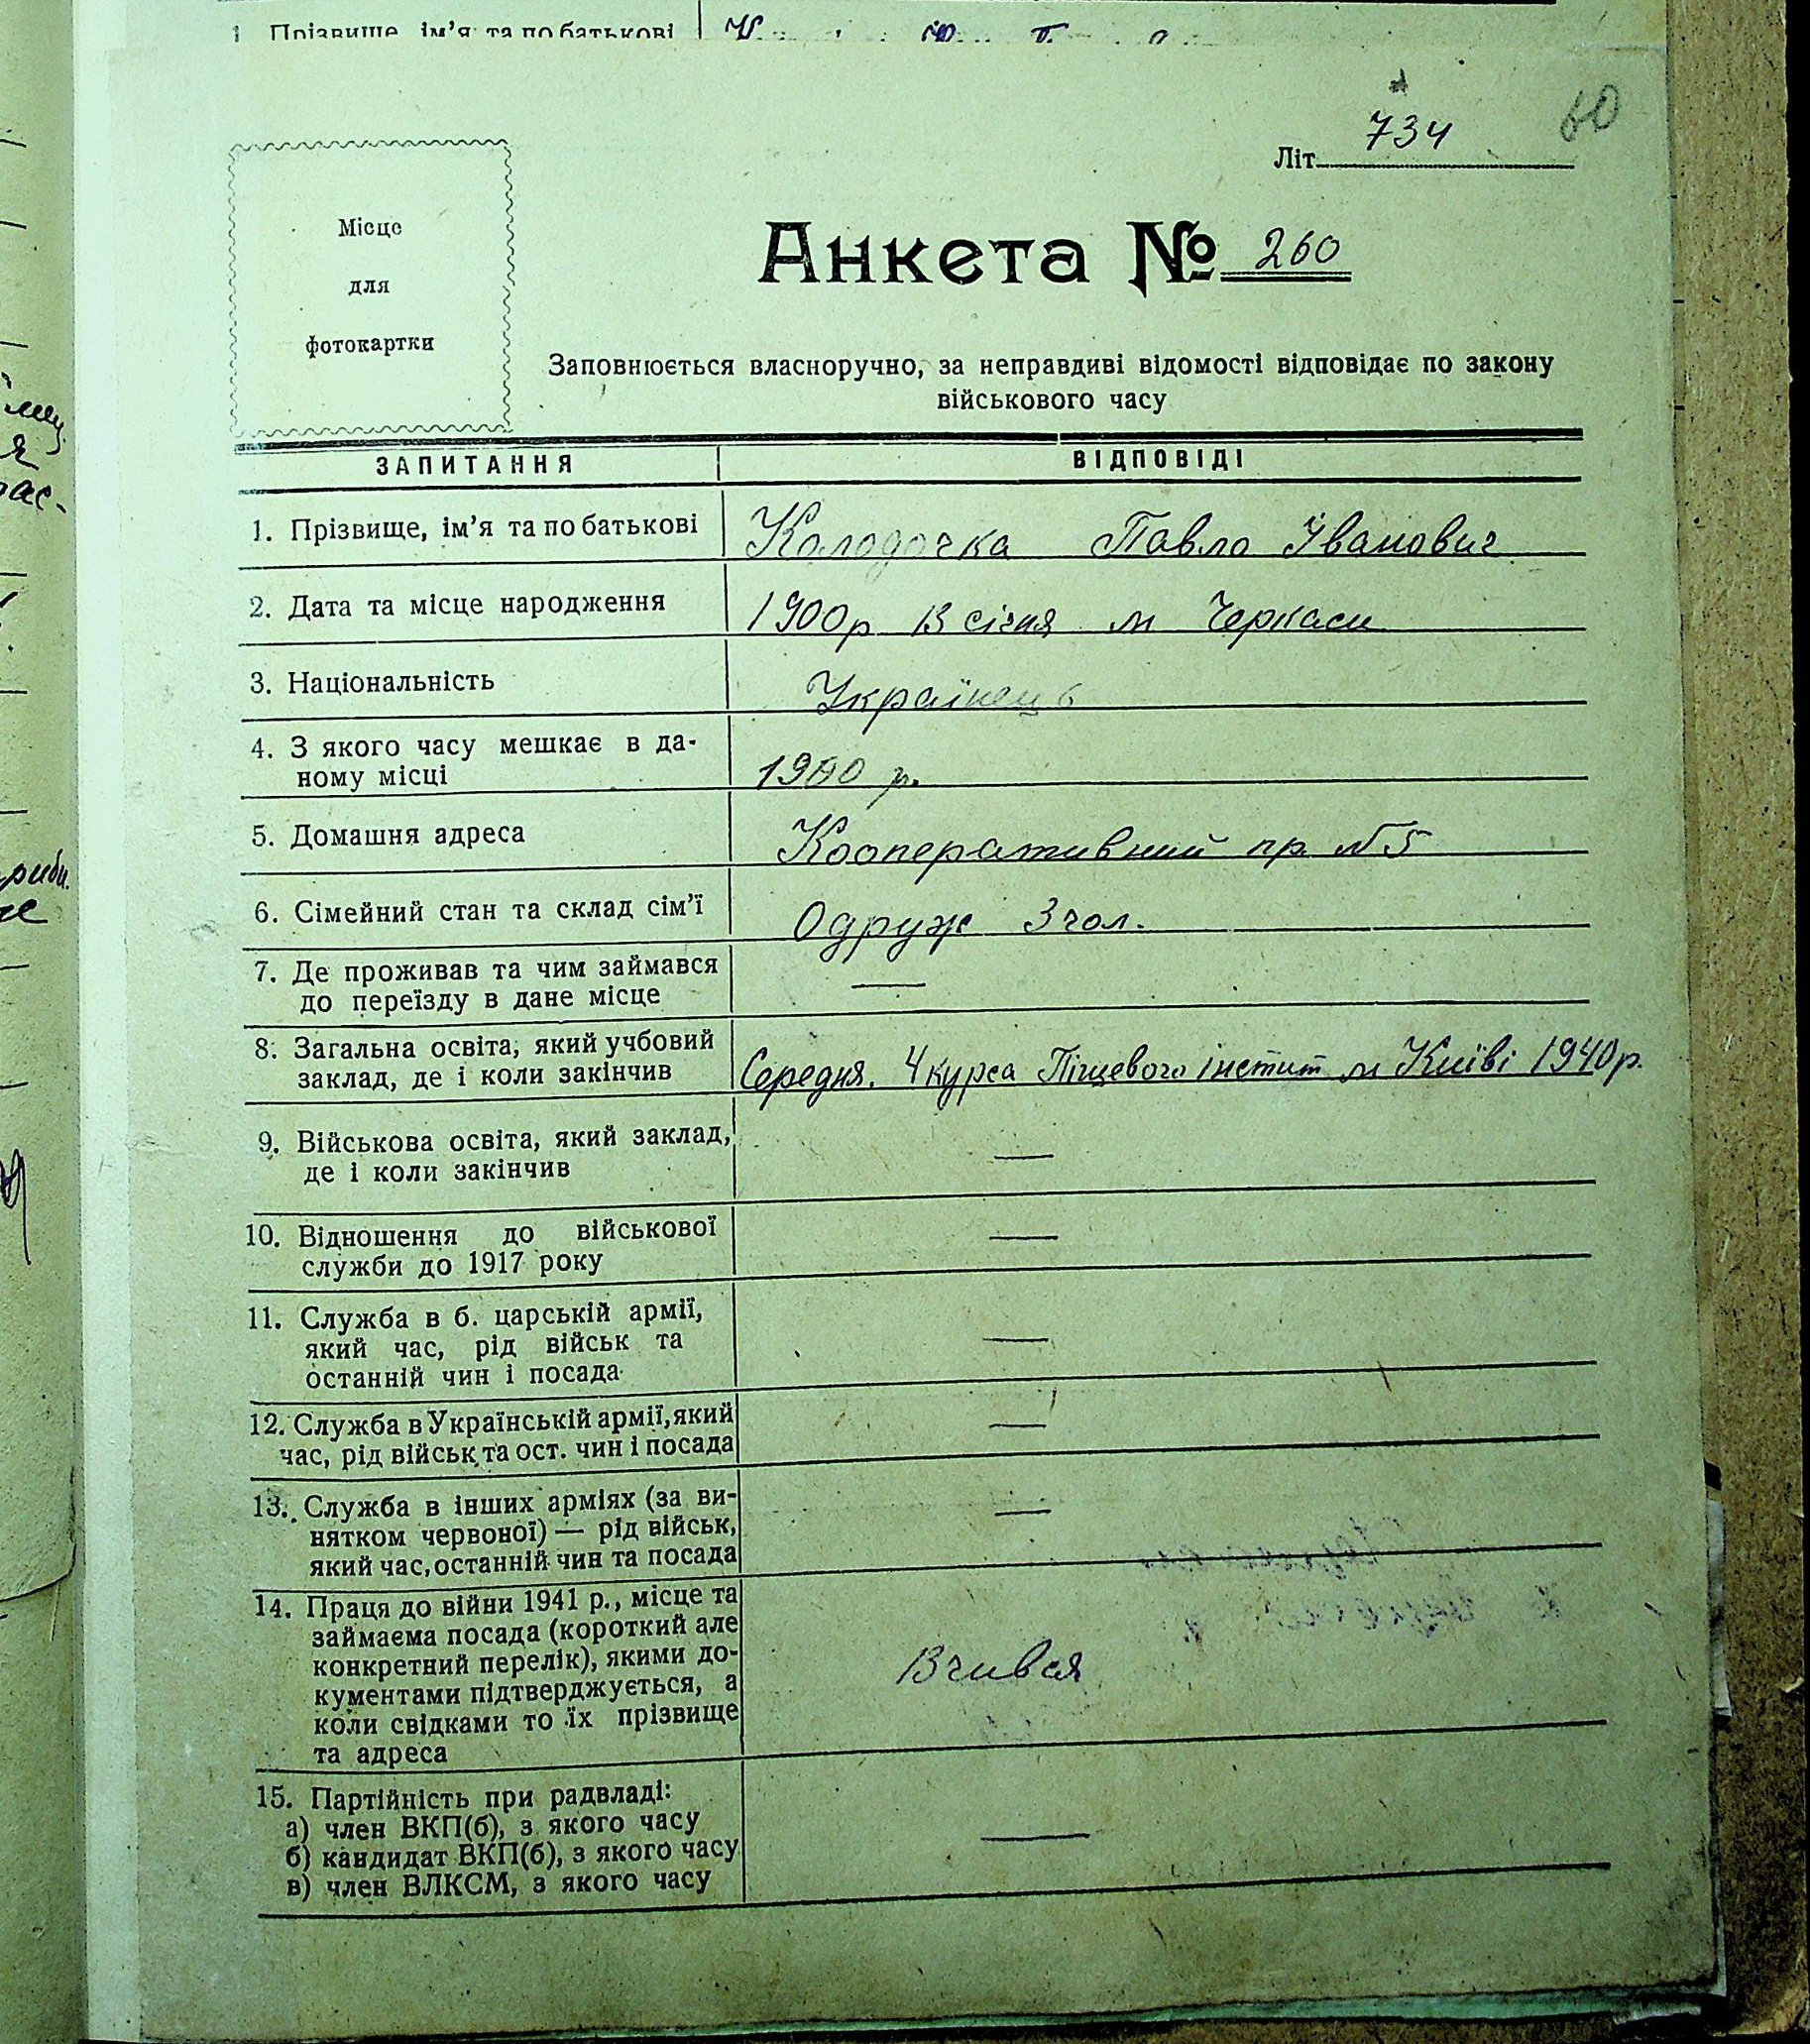 1 Прізвище, ім’я та по батькові
60
Літ 734
Місце
для
фотокартки
Анкета № 260
Заповнюється власноручно, за неправдиві відомості відповідає по закону
військового часу
ЗАПИТАННЯ ВІДПОВІДІ
1. Прізвище, ім’я та по батькові Колодочка Павло Іванович
2. Дата та місце народження 1900р 13 січня м Черкаси
3. Національність Українець
4. З якого часу мешкає в да-
ному місці 1900 р.
5. Домашня адреса Кооперативний пр. №5
6. Сімейний стан та склад сім’ї Одруж 3 чол.
7. Де проживав та чим займався —
до переїзду в дане місце
8. Загальна освіта, який учбовий
заклад, де і коли закінчив Середня. 4 курса Піщевого інстит м Київі 1940р.
9. Військова освіта, який заклад, —
де і коли закінчив
10. Відношення до військової —
служби до 1917 року
11. Служба в б. царській армії,
який час, рід військ та —
останній чин і посада
12. Служба в Українській армії, який —
час, рід військ та ост. чин і посада
13. Служба в інших арміях (за ви- —
нятком червоної) — рід військ,
який час, останній чин та посада
14. Праця до війни 1941 р., місце та
займаєма посада (короткий але
конкретний перелік), якими до- Вчився
кументами підтверджується, а
коли свідками то їх прізвище
та адреса
15. Партійність при радвладі:
а) член ВКП(б), з якого часу —
б) кандидат ВКП(б), з якого часу
в) член ВЛКСМ, з якого часу